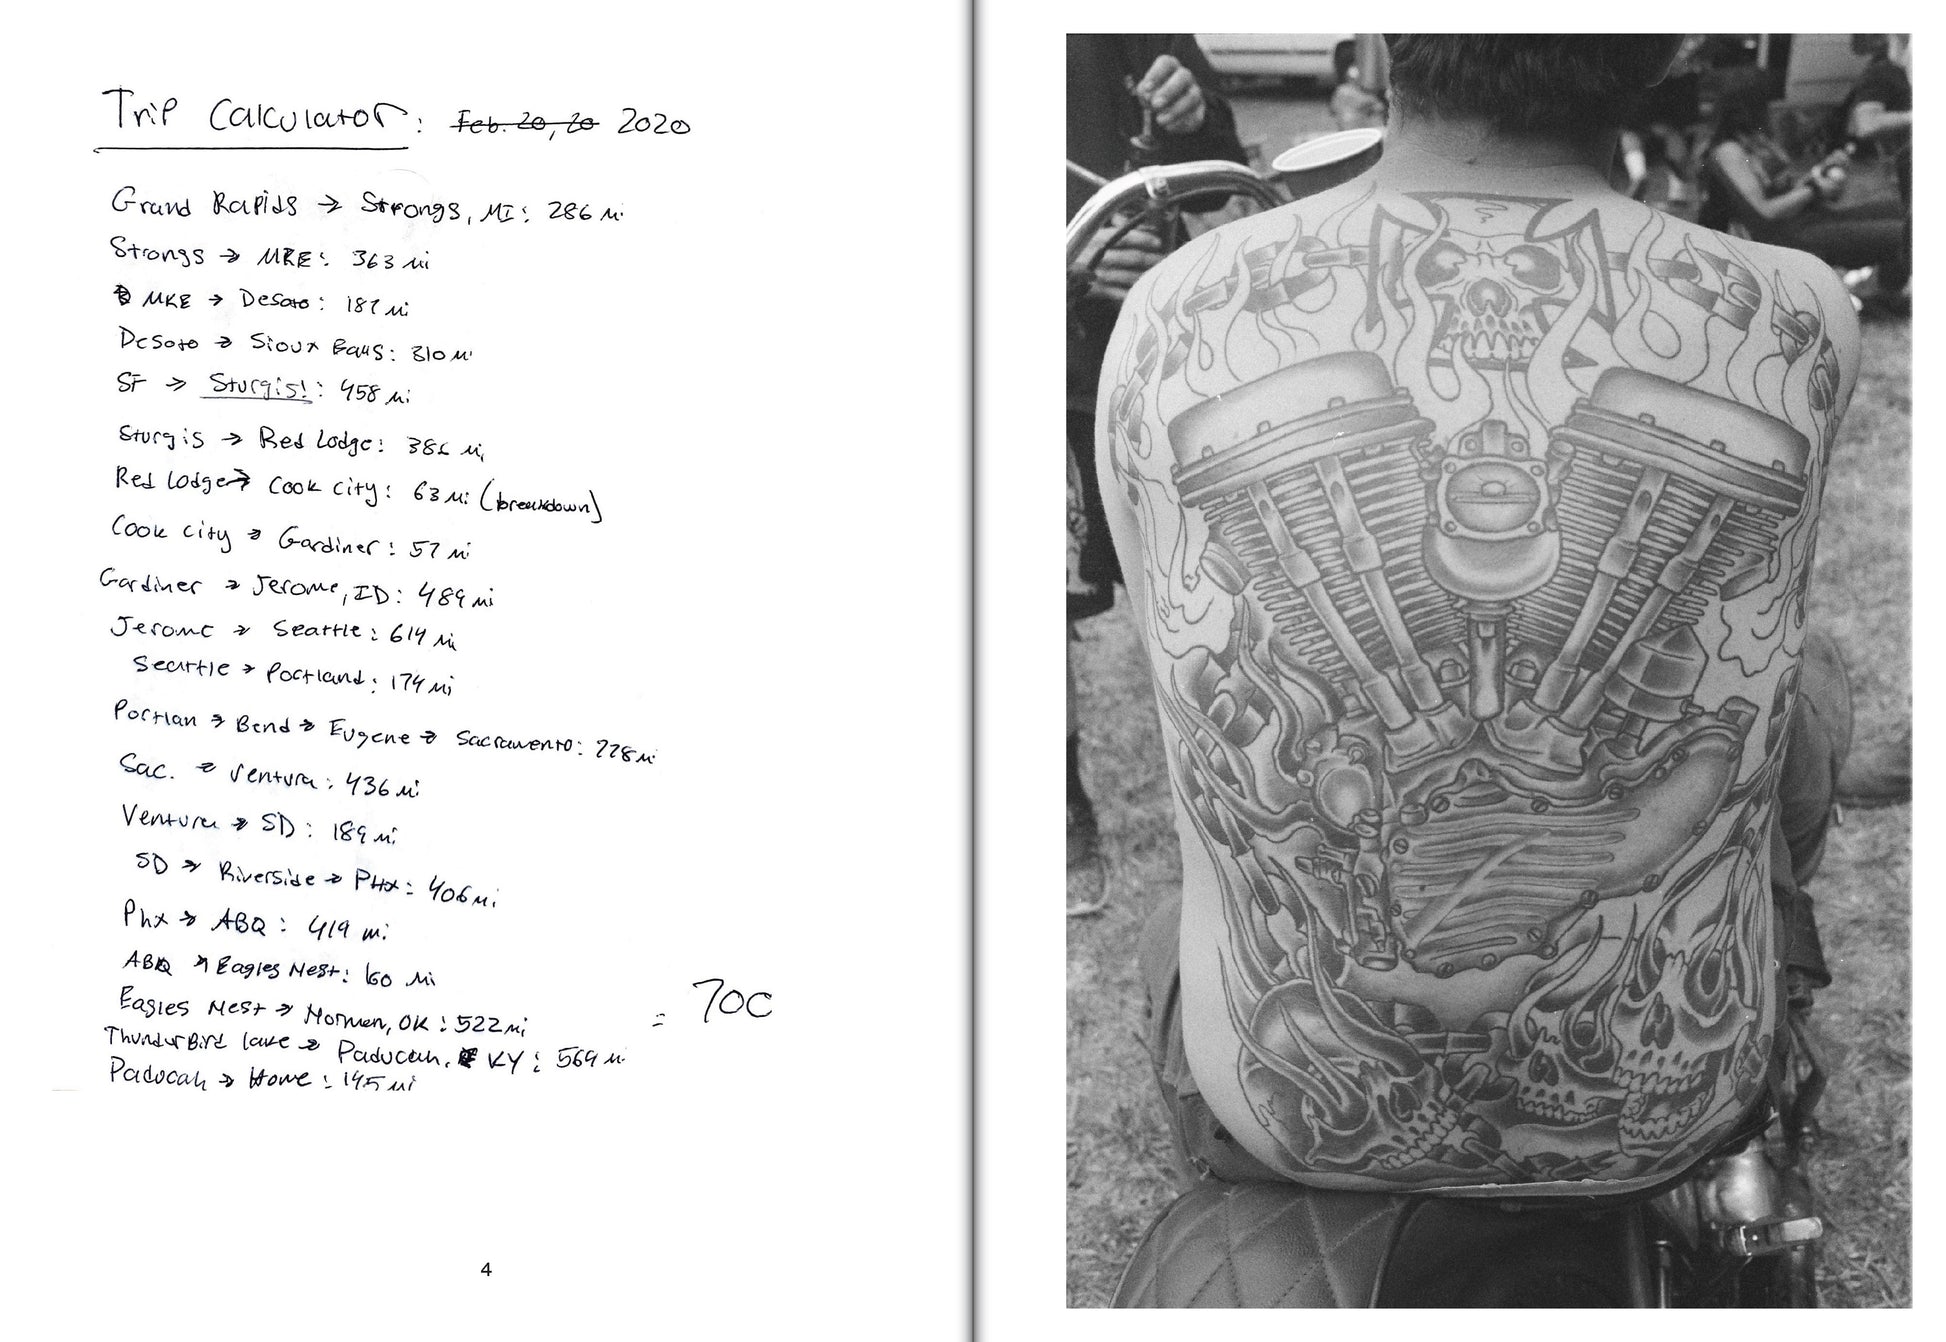 Trip Calculator: Feb. 20, 20 2020
Grand Rapids → Strongs, MI: 286 mi
Strongs → MKE: 363 mi
MKE → Desoto: 187 mi
Desoto → Sioux Falls: 310 mi
SF → Sturgis!: 458 mi
Sturgis → Red Lodge: 386 mi
Red Lodge → Cook City: 63 mi (breakdown)
Cook City → Gardiner: 57 mi
Gardiner → Jerome, ID: 489 mi
Jerome → Seattle: 614 mi
Seattle → Portland: 174 mi
Portlan → Bend → Eugene → Sacramento: 778 mi
Sac. → Ventura: 436 mi
Ventura → SD: 189 mi
SD → Riverside → PHX: 406 mi
Phx → ABQ: 419 mi
ABQ → Eagles Nest: 160 mi
Eagles Nest → Norman, OK: 522 mi
= 70C
Thunder Bird lake → Paducah, KY: 569 mi
Paducah → Home: 145 mi
4